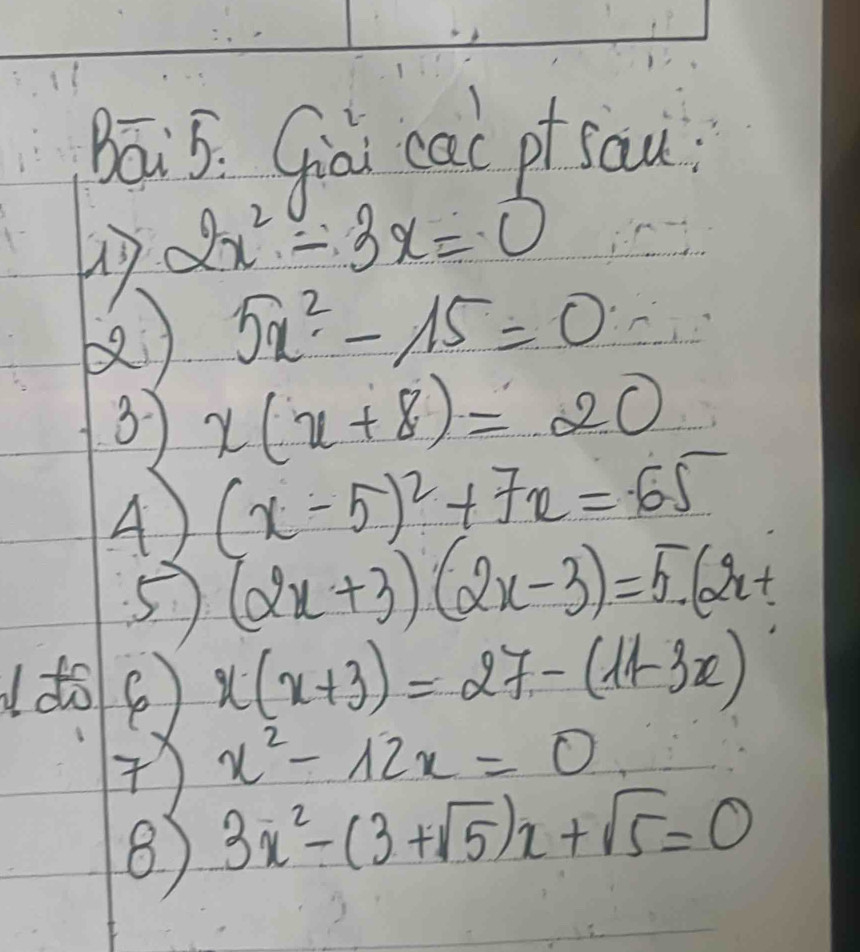 Bài 5. Giải các pt sau:
1) 2x² - 3x = 0
2) 5x² - 15 = 0
3) x(x + 8) = 20
4) (x - 5)² + 7x = 65
5) (2x + 3)(2x - 3) = 5.(2x +
6) x(x + 3) = 27 - (11 - 3x)
7) x² - 12x = 0
8) 3x² - (3 + √5)x + √5 = 0